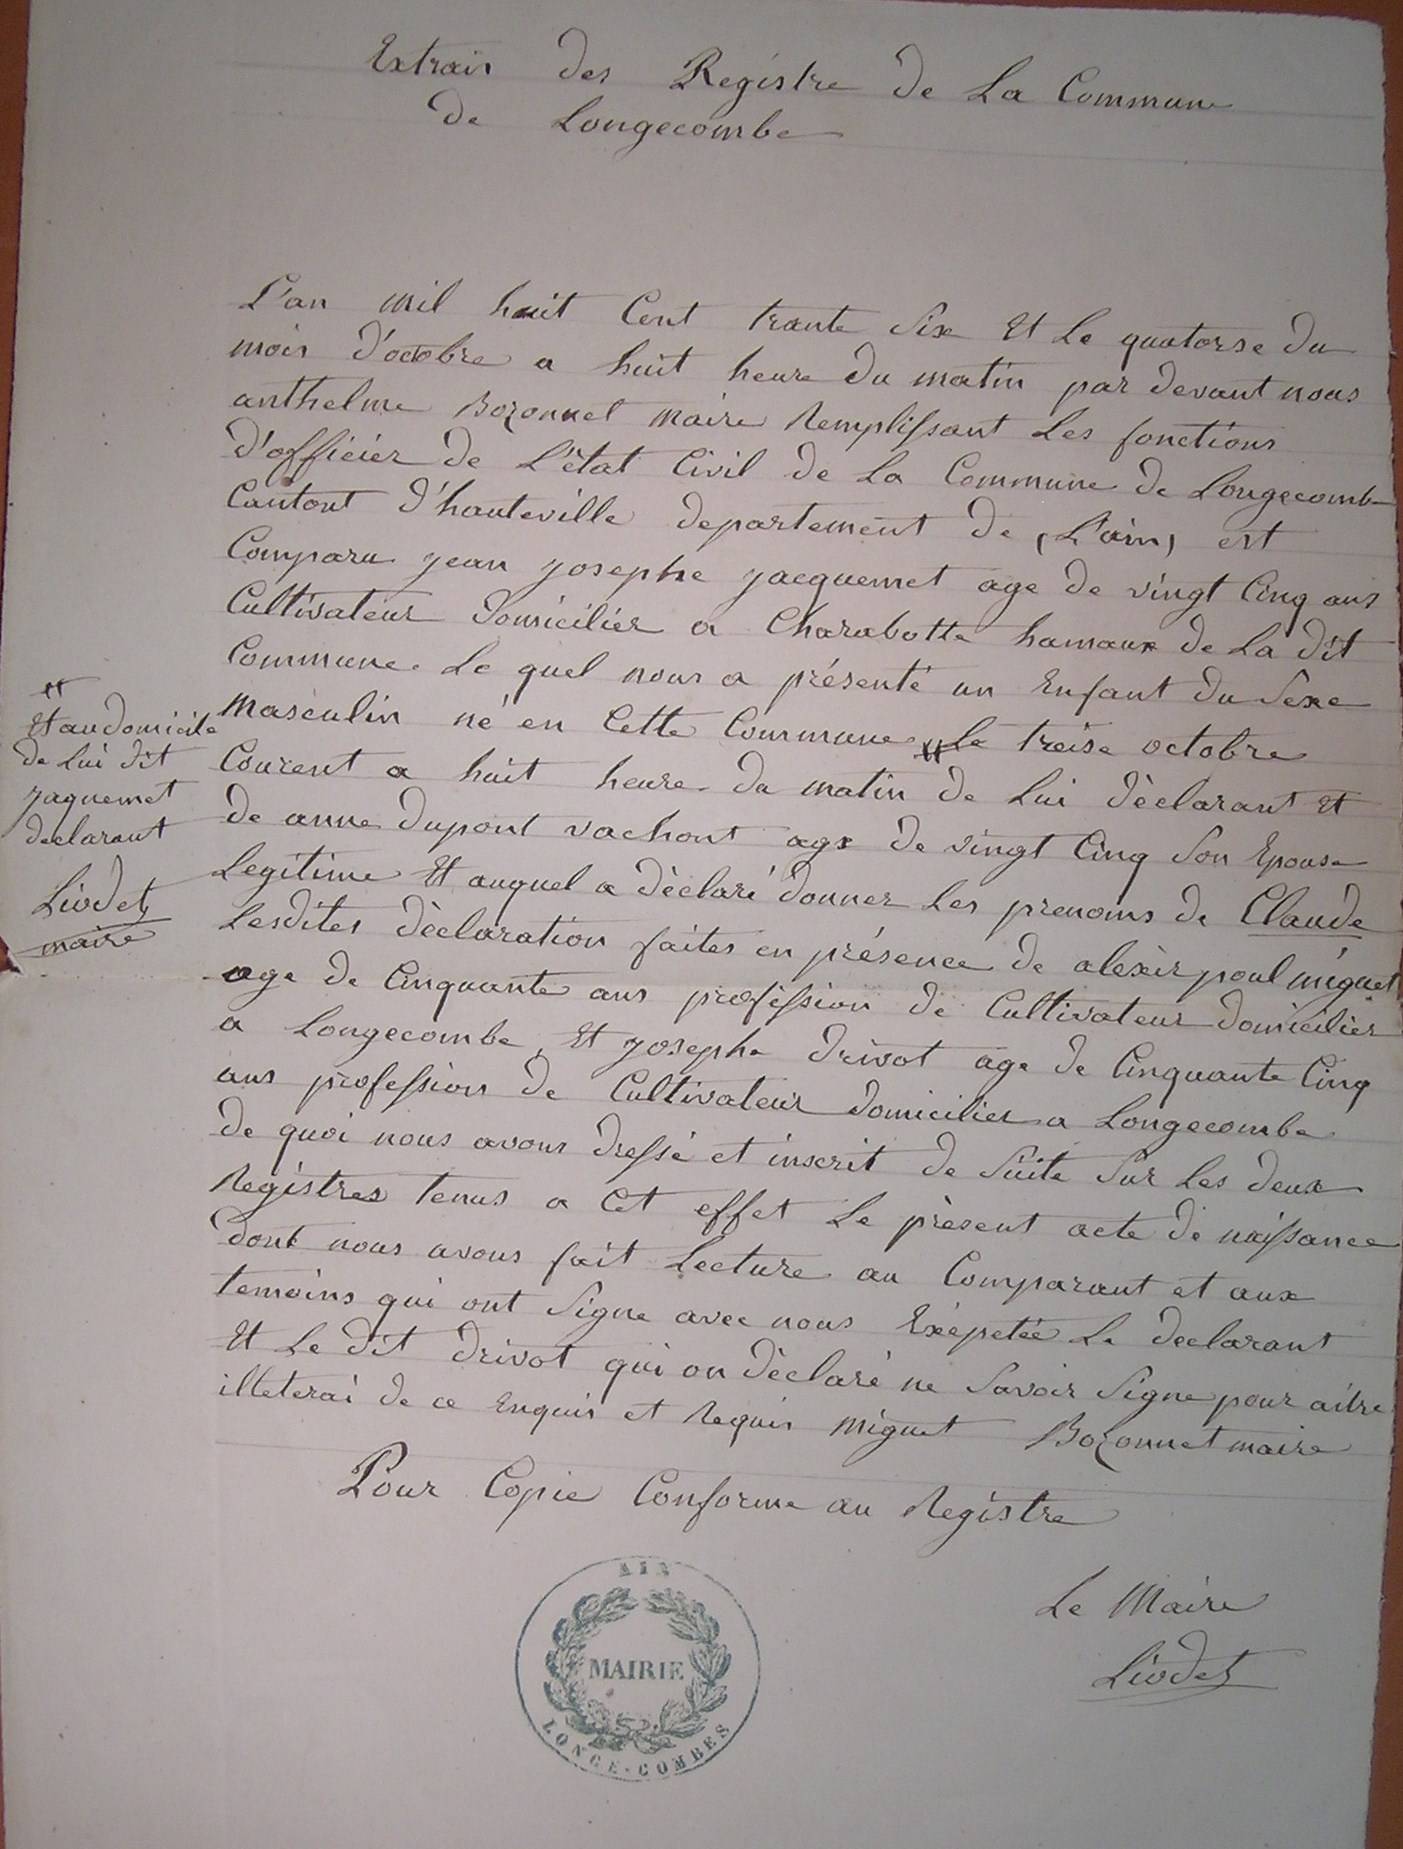 Extrais des Registre de La Commune
de Longecombe
L'an mil huit Cent trante Six Et Le quatorse du
mois d'octobre a huit heure du matin par devant nous
anthelme Bozonnet maire Remplissant Les fonctions
d'officier de L'état Civil de La Commune de Longecombe
Cantont d'hauteville departement de (L'ain) est
Comparu jean josephe jacquemet age de vingt Cinq ans
Cultivateur domicilier a Charabotte hamaux de La dit
Commune. Le quel nous a présenté un Enfant du Sexe
Masculin né en Cette Commune Le treise octobre
Courent a huit heure du matin de Lui déclarant Et
de anne dupont vachont age de vingt Cinq Son Epouse
Legitime Et auquel a déclaré donner Les prenoms de Claude
Lesdites déclaration faites en présence de alexis poul miguet
age de Cinquante ans profession de Cultivateur domicilier
a Longecombe Et josephe drivot age de Cinquante Cinq
ans profession de Cultivateur domicilier a Longecombe
de quoi nous avons dressé et inscrit de Suite Sur Les deux
Registres tenus a Cet effet Le présent acte de naissance
dont nous avons fait Lecture au Comparant et aux
temoins qui ont Signe avec nous Exépetée Le declarant
Et Le dit drivot qui on déclaré ne Savoir Signe pour aitre
illeterai de ce Enquis et Requis Miguet Bozonnet maire
Pour Copie Conforme au Registre
Le Maire
Liodet
Et au domicile
de Lui dit
jaquemet
declarant
Liodet
maire
AIN
MAIRIE
LONGE-COMBES